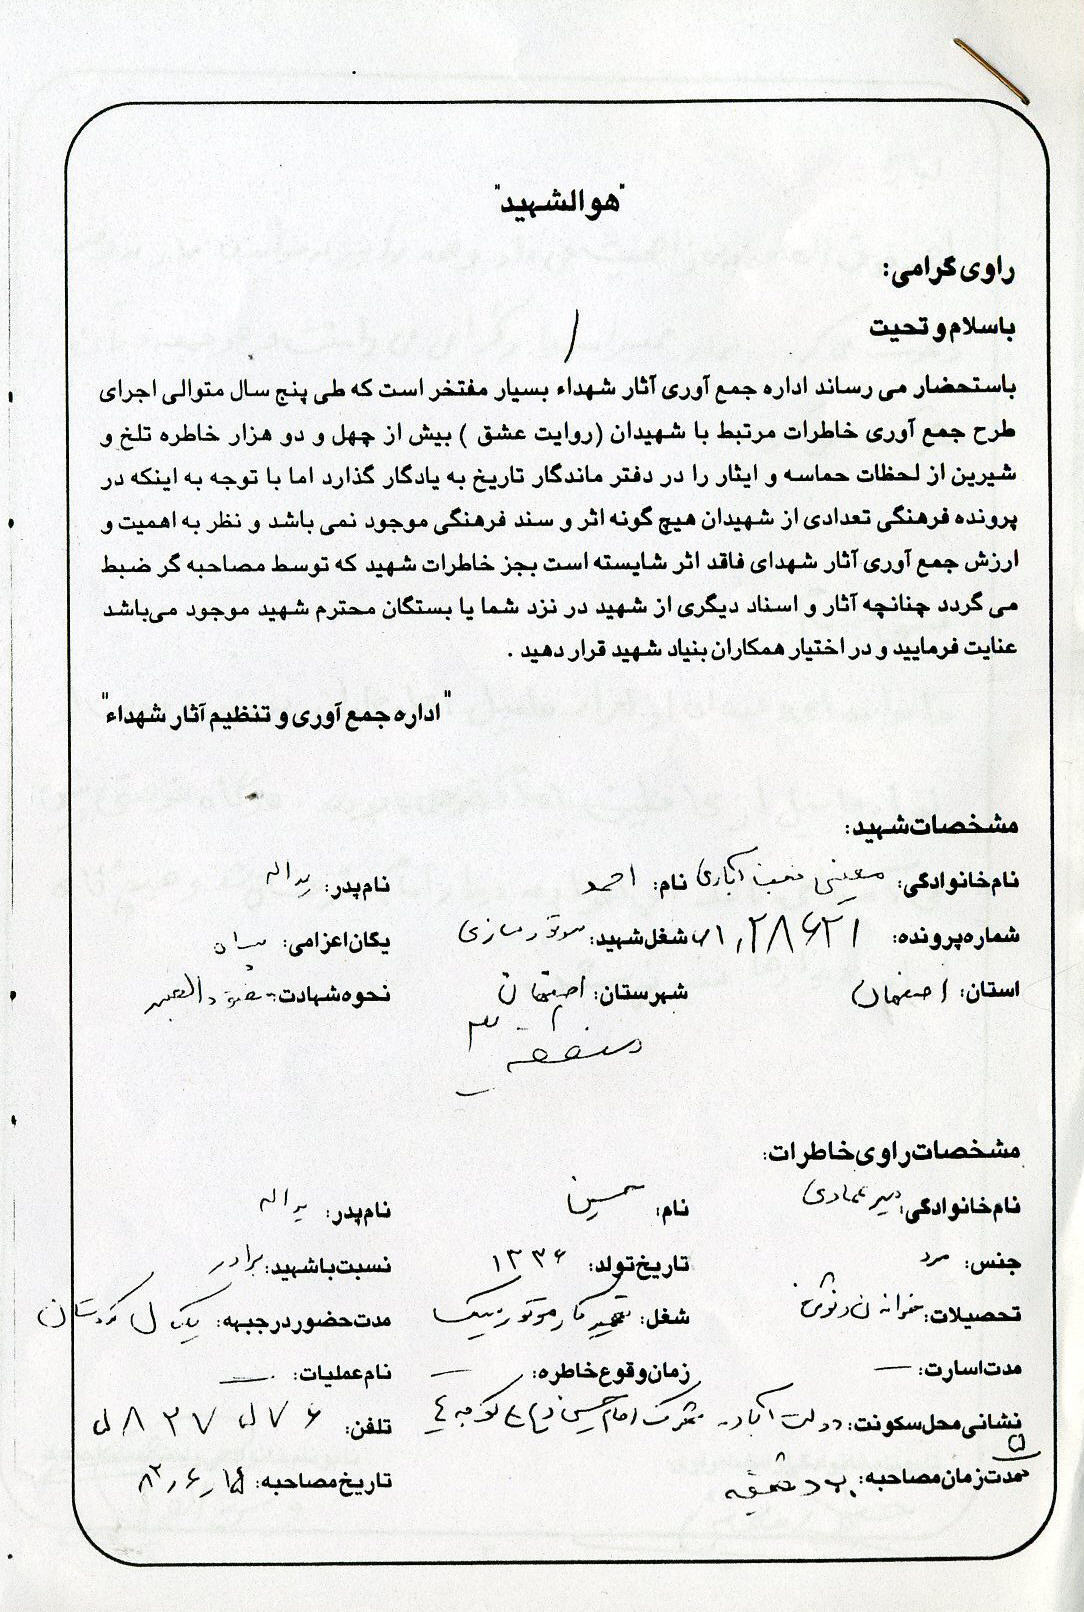 "هوالشهید"
راوی گرامی:
باسلام و تحیت
باستحضار می رساند اداره جمع آوری آثار شهداء بسیار مفتخر است که طی پنج سال متوالی اجرای
طرح جمع آوری خاطرات مرتبط با شهیدان (روایت عشق ) بیش از چهل و دو هزار خاطره تلخ و
شیرین از لحظات حماسه و ایثار را در دفتر ماندگار تاریخ به یادگار گذارد اما با توجه به اینکه در
پرونده فرهنگی تعدادی از شهیدان هیچ گونه اثر و سند فرهنگی موجود نمی باشد و نظر به اهمیت و
ارزش جمع آوری آثار شهدای فاقد اثر شایسته است بجز خاطرات شهید که توسط مصاحبه گر ضبط
می گردد چنانچه آثار و اسناد دیگری از شهید در نزد شما یا بستگان محترم شهید موجود می‌باشد
عنایت فرمایید و در اختیار همکاران بنیاد شهید قرار دهید .
"اداره جمع آوری و تنظیم آثار شهداء"
مشخصات شهید:
نام خانوادگی: معینی نام: احمد نام پدر: یداله
شماره پرونده: شغل شهید: موتورسازی یگان اعزامی: سپاه
استان: اصفهان شهرستان: اصفهان نحوه شهادت: مفقودالجسد
منطقه ۳
مشخصات راوی خاطرات:
نام خانوادگی: نام: حسین نام پدر: یداله
جنس: مرد تاریخ تولد: ۱۳۳۶ نسبت باشهید: برادر
تحصیلات: شغل: تعمیرکار موتورسیکلت مدت حضور در جبهه: یکسال کردستان
مدت اسارت: — زمان وقوع خاطره: — نام عملیات: —
نشانی محل سکونت: دولت آباد شهرک امام حسین تلفن:
مدت زمان مصاحبه: دقیقه تاریخ مصاحبه: ۸۲٫۶٫۱۵